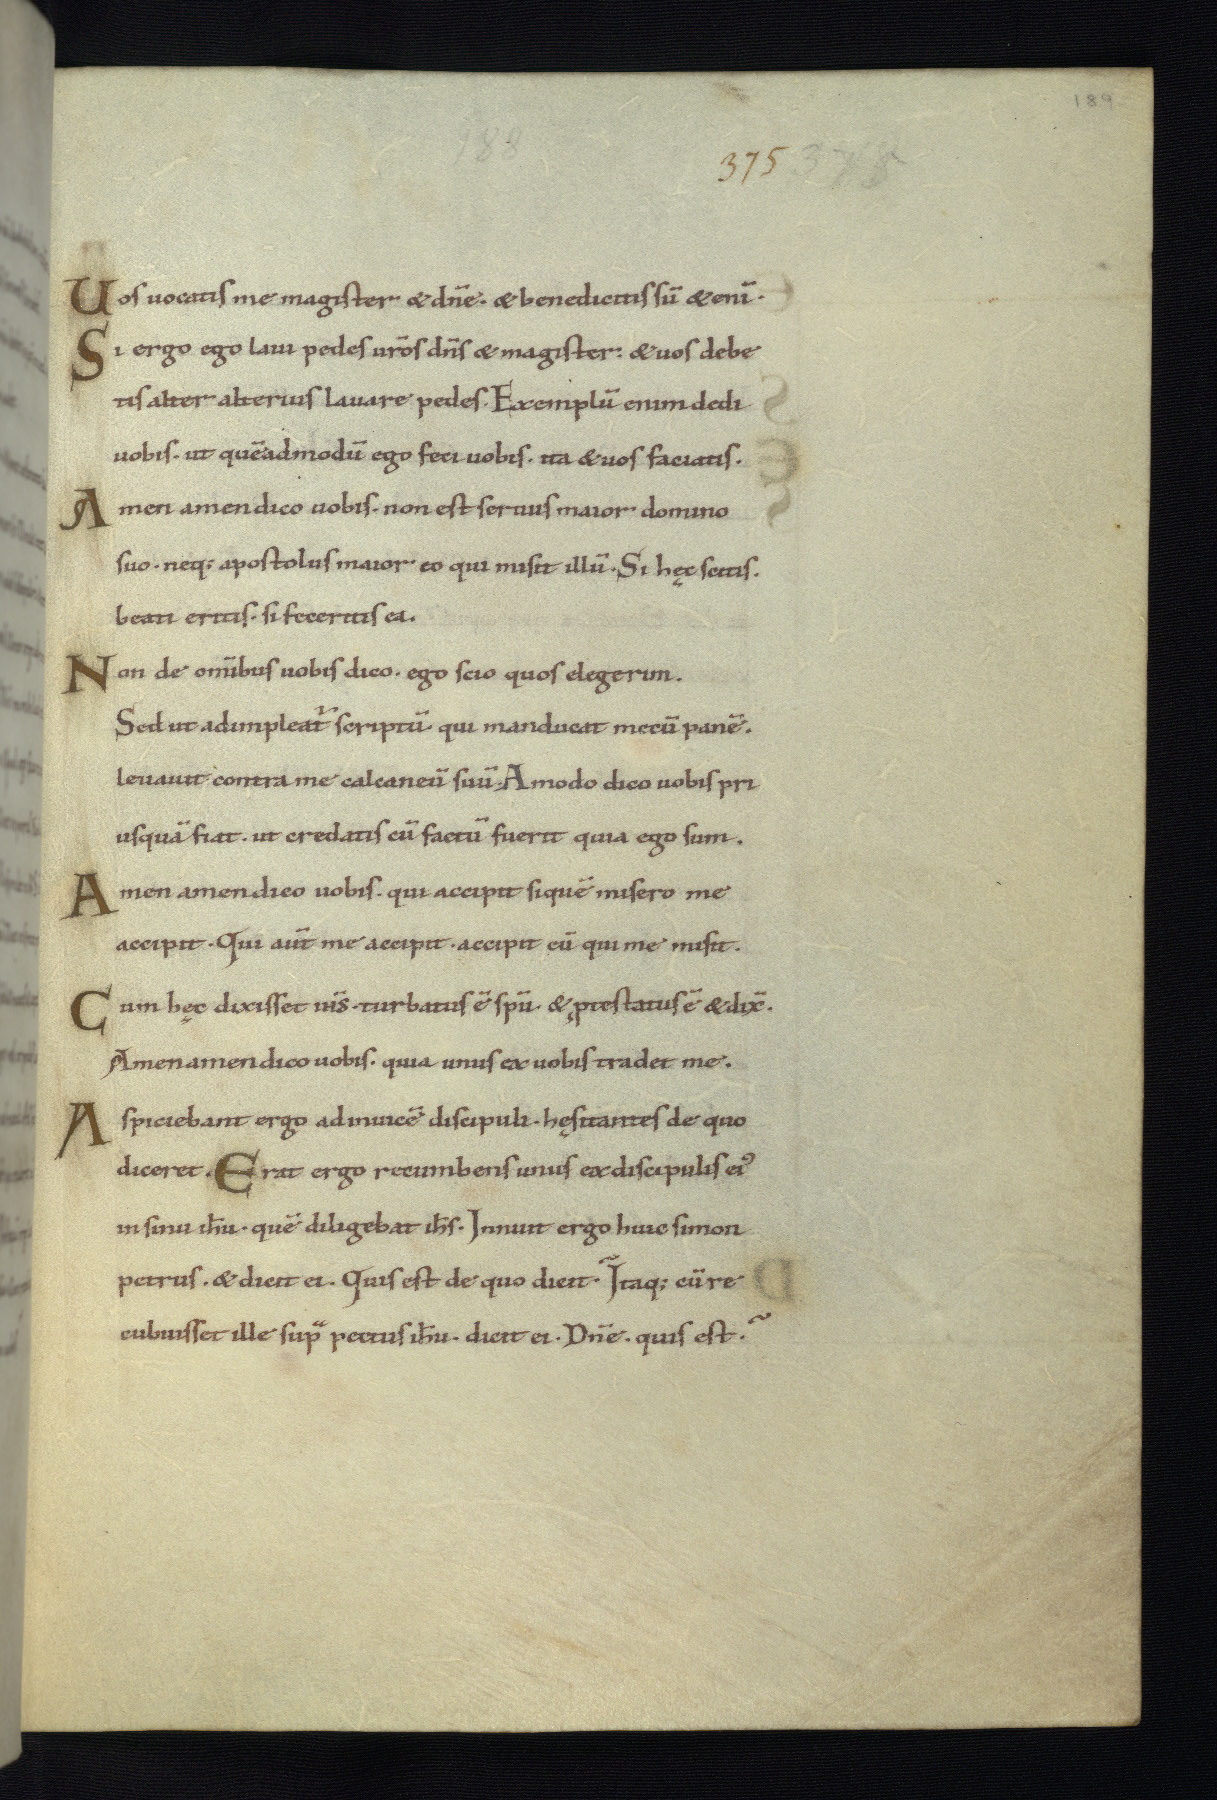 189
188
375 375
Uos uocatis me magister & dn̄e. & benedicitis sū & eni̅.
Si ergo ego laui pedes ur̄os dn̄s & magister: & uos debe
tis alter alterius lauare pedes. Exemplū enim dedi
uobis. ut quēadmodū ego feci uobis. ita & uos faciatis.
Amen amen dico uobis. non est seruus maior domino
suo. neq; apostolus maior eo qui misit illū. Si hęc scitis.
beati eritis. si feceritis ea.
Non de om̄ibus uobis dico. ego scio quos elegerim.
Sed ut adimpleat᷑ scriptū. qui manducat mecū panē.
leuauit contra me calcaneū suū. Amodo dico uobis pri
usquā fiat. ut credatis cū factū fuerit quia ego sum.
Amen amen dico uobis. qui accipit siquē misero me
accipit. Qui aūt me accipit. accipit eū qui me misit.
Cum hęc dixisset ih̄s. turbatus ē spū. & ꝓtestatus ē & dix̄.
Amen amen dico uobis. quia unus ex uobis tradet me.
Aspiciebant ergo adinuicē discipuli. hęsitantes de quo
diceret. Erat ergo recumbens unus ex discipulis eiꝰ
in sinu ih̄u. quē diligebat ih̄s. Innuit ergo huic simon
petrus. & dicit ei. Quis est de quo dicit.~ Itaq; cū re
cubuisset ille sup̄ pectus ih̄u. dicit ei. Dn̄e. quis est.~